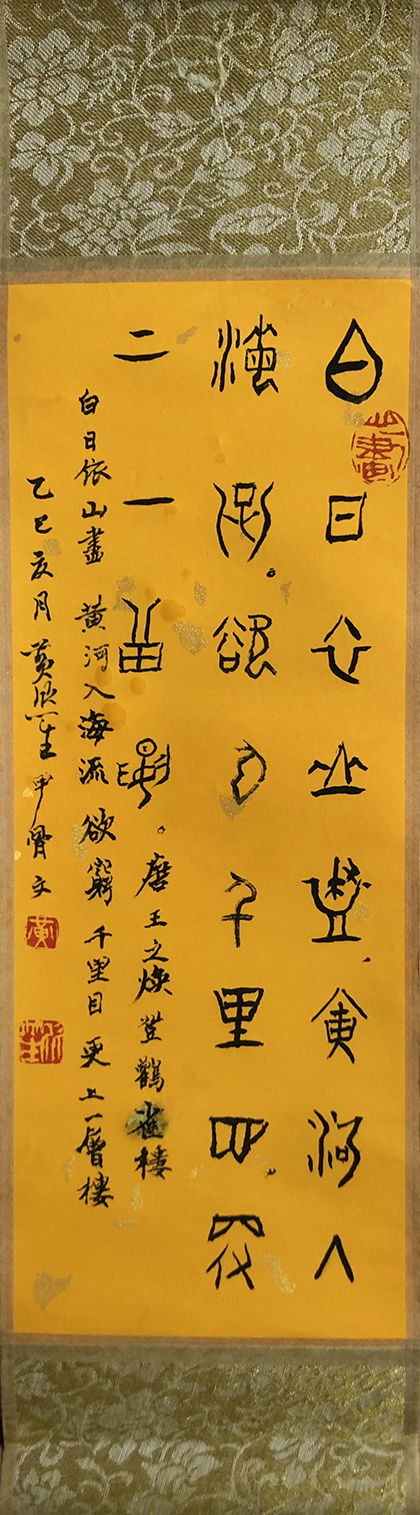 白日依山盡黃河入
海流。欲窮千里目。更
上一層樓。唐王之渙登鸛雀樓
白日依山盡 黃河入海流 欲窮千里目 更上一層樓
乙巳亥月 黃 生 甲骨文
黃